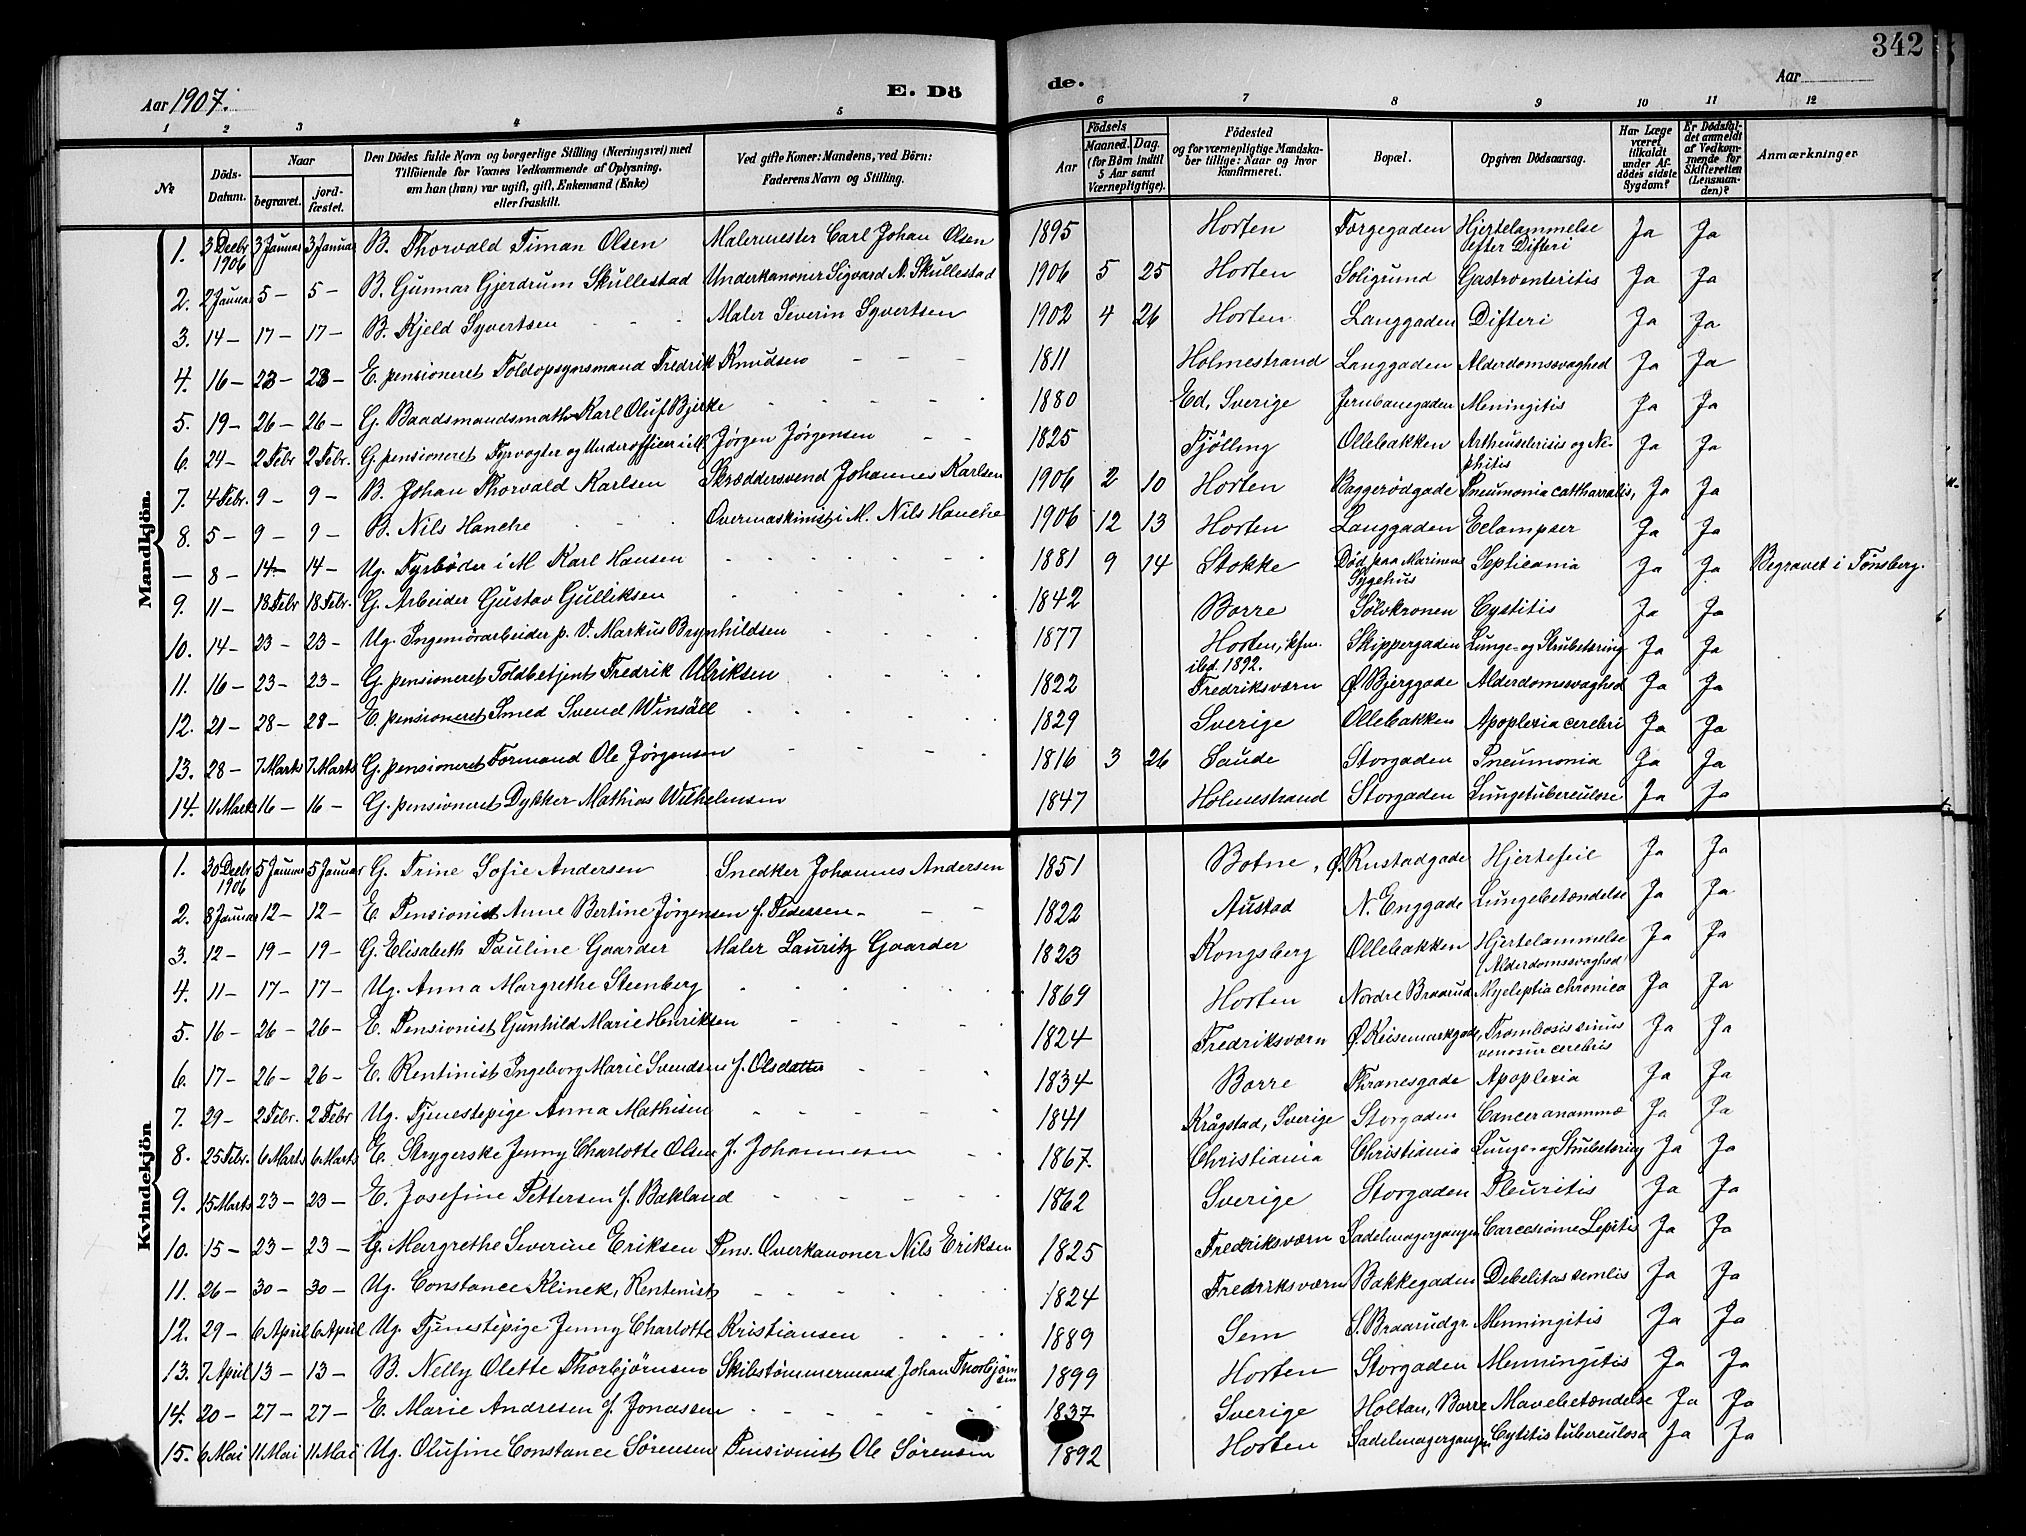 342
Aar 1907. E. Dö de. Aar
1 2 3 4 5 6 7 8 9 10 11 12
No
Döds-Datum.
Naar
begravet.
jord-fæstet.
Den Dödes fulde Navn og borgerlige Stilling (Næringsvei) med
Tilföiende for Voxnes Vedkommende af Oplysning,
om han (hun) var ugift, gift, Enkemand (Enke)
eller fraskilt.
Ved gifte Koner: Mandens, ved Börn:
Faderens Navn og Stilling.
Födsels
Aar Maaned. Dag.
(for Börn indtil
5 Aar samt
Værnepligtige).
Födested
og for værnepligtige Mandska-
ber tillige: Naar og hvor
konfirmeret.
Bopæl.
Opgiven Dödsaarsag.
Har Læge
været
tilkaldt
under Af-
dödes sidste
Sygdom?
Er Dödsfal-
det anmeldt
af Vedkom-
mende for
Skifteretten
(Lensman-
den)?
Anmærkninger
Mandkjön.
1. 3 Decbr 1906 3 Januar 3 Januar B. Thorvald Timan Olsen Malermester Carl Johan Olsen 1895 Horten Torggaden Hjertelammelse efter Difteri Ja Ja
2. 2 Januar 5 - 5 - B. Gunnar Gjerdrum Skullestad Underkanoner Sigvard A. Skullestad 1906 5 25 Horten Soligrund Gastroenteritis Ja Ja
3. 14 - 17 - 17 - B. Kjeld Syvertsen Maler Severin Syvertsen 1902 4 26 Horten Langgaden Difteri Ja Ja
4. 16 - 23 - 23 - E. pensioneret Toldopsynsmand Fredrik Knudsen 1811 Holmestrand Langgaden Alderdomssvaghed Ja Ja
5. 19 - 26 - 26 - G. Baadsmandsmath Karl Oluf Bjerke 1880 Ed, Sverige Jernbanegaden Meningitis Ja Ja
6. 24 - 2 Febr 2 Febr. G. pensioneret Fyrvogter og Underofficer i M. Jørgen Jørgensen 1825 Tjølling Ollebakken og Ne-phitis Ja Ja
7. 4 Febr. 9 - 9 - B. Johan Thorvald Karlsen Skræddersvend Johannes Karlsen 1906 2 10 Horten Baggerødgade Pneumonia cattharralis, Ja Ja
8. 5 - 9 - 9 - B. Nils Hanche Overmaskinist i M. Nils Hanche 1906 12 13 Horten Langgaden Eclampser Ja Ja
— 8 - 14 - 14 - Ug. Fyrbøder i M Karl Hansen 1881 9 14 Stokke Død paa Marinens Sygehus Septicæmia Ja Ja Begravet i Tønsberg.
9. 11 - 18 Febr 18 Febr. G. Arbeider Gustav Gulliksen 1842 Borre Sølvkronen Cystitis Ja Ja
10. 14 - 23 - 23 - Ug. Ingeniørarbeider p. V. Markus Brynhildsen 1877 Horten, kfm. ibd. 1892. Skippergaden Lunge- og Strubetæring Ja Ja
11. 16 - 23 - 23 - G. pensioneret Toldbetjent Fredrik Ulriksen 1822 Fredriksværn Ø. Bjerggade Alderdomssvaghed Ja Ja
12. 21 - 28 - 28 - E. pensioneret Smed Svend Winsäll 1829 Sverige Ollebakken Apoplexia cerebri Ja Ja
13. 28 - 7 Marts 7 Marts G. pensioneret Formand Ole Jørgensen 1816 3 26 Saude Storgaden Pneumonia Ja Ja
14. 11 Marts 16 - 16 - G. pensioneret Dykker Mathias Wilhelmsen 1847 Holmestrand Storgaden Lungetuberculose Ja Ja
Kvindekjön
1. 30 Decbr 1906 5 Januar 5 Januar G. Trine Sofie Andersen Snedker Johannes Andersen 1851 Botne Ø. Rustadgade Hjertefeil Ja Ja
2. 8 Januar 12 - 12 - E. Pensionist Anne Bertine Jørgensen f. Pedersen 1822 Austad N. Enggade Lungebetændelse Ja Ja
3. 12 - 19 - 19 - G. Elisabeth Pauline Gaarder Maler Lauritz Gaarder 1823 Kongsberg Ollebakken Hjertelammelse (Alderdomssvaghed) Ja Ja
4. 11 - 17 - 17 - Ug. Anna Margrethe Steenberg 1869 Horten Nordre Braarud chronica Ja Ja
5. 16 - 26 - 26 - E. Pensionist Gunhild Marie Henriksen 1824 Fredriksværn Ø. Keisemarkgade, Trombosis sinus venosum cerebris Ja Ja
6. 17 - 26 - 26 - E. Rentinist Ingeborg Marie Svendsen f. Olsdatter 1834 Borre Thranesgade Apoplexia Ja Ja
7. 29 - 2 Febr. 2 Febr Ug. Tjenestepige Anna Mathisen 1841 Krågstad, Sverige Storgaden Cancer mammæ Ja Ja
8. 25 Febr. 6 Marts 6 Marts E. Strygerske Jenny Charlotte Olsen f. Johannesen 1867. Christiania Christiania Lunge- og Strubetæring Ja Ja
9. 15 Marts 23 - 23 - E. Josefine Pettersen f. Bakland 1862 Sverige Storgaden Pleuritis Ja Ja
10. 15 - 23 - 23 - G. Margrethe Severine Eriksen Pens. Overkanoner Nils Eriksen 1825 Fredriksværn Sadelmagergangen Ja Ja
11. 26 - 30 - 30 - Ug. Constance Klinck, Rentenist 1824 Fredriksværn Bakkegaden Debelitas semlis Ja Ja
12. 29 - 6 April 6 April Ug. Tjenestepige Jenny Charlotte Kristiansen 1889 Sem S. Braarudgt. Menningitis Ja Ja
13. 7 April 13 - 13 - B. Nelly Olette Thorbjørnsen Skibstømmermand Johan Thorbjørnsen 1899 Horten Storgaden Menningitis Ja Ja
14. 20 - 27 - 27 - E. Marie Andresen f. Jonassen 1837 Sverige Holtan, Borre Mavebetændelse Ja Ja
15. 6 Mai 11 Mai 11 Mai Ug. Olufine Constance Sørensen Pensionist Ole Sørensen 1892 Horten Sadelmagergangen Cystitis tuberculosa Ja Ja